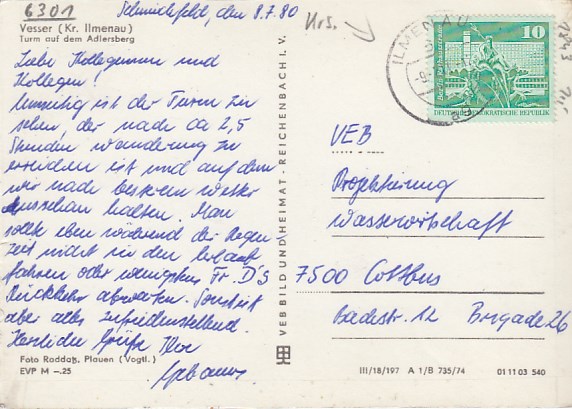 6301
Schmiedefeld, den 8.7.80
Vesser (Kr. Ilmenau)
Turm auf dem Adlersberg
Liebe Kolleginnen und
Kollegen!
Umseitig ist der Turm zu
sehen, der nach ca 2,5
Stunden Wanderung zu
erreichen ist und auf dem
wir nach besserem Wetter
Ausschau halten. Man
sollte eben während der Regen-
zeit nicht in den Urlaub
fahren oder wenigstens Fr. D'S
Rückkehr abwarten. Sonst ist
aber alles zufriedenstellend.
Herzliche Grüße Ihre
Foto Roddatz, Plauen (Vogtl.)
EVP M –.25
VEB BILD UND HEIMAT · REICHENBACH I. V.
Urs.
ILMENAU
10
DEUTSCHE DEMOKRATISCHE REPUBLIK
VEB
Projektierung
Wasserwirtschaft
7500 Cottbus
Badestr. 12 Brigade 26
III/18/197 A 1/B 735/74 01 11 03 540